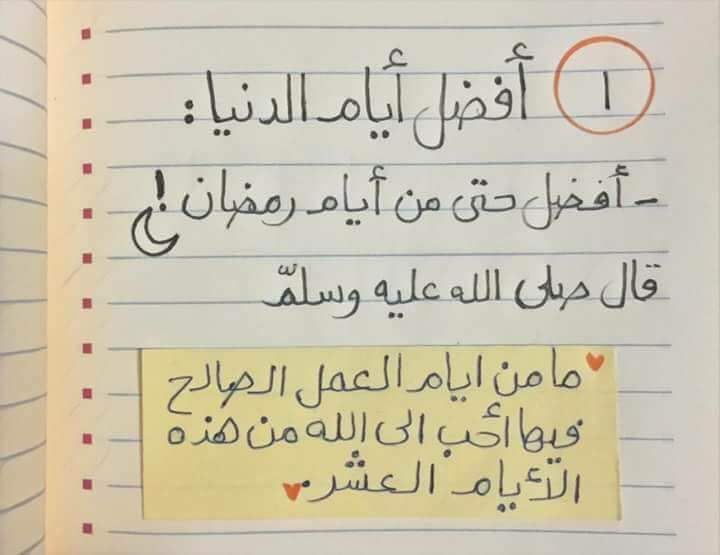 ١ أفضل أيام الدنيا:
- أفضل حتى من أيام رمضان!
قال صلى الله عليه وسلمّ
ما من ايام العمل الصالح
فيها أحب الى الله من هذه
الأيام العشر.